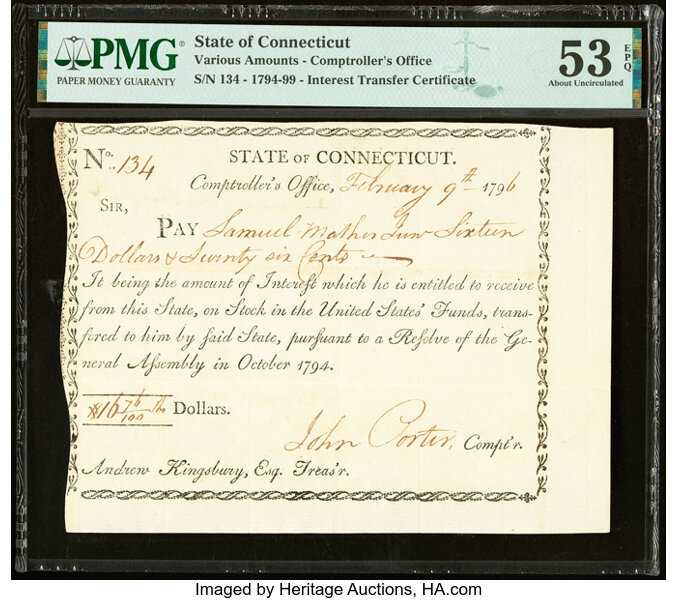 PMG®
PAPER MONEY GUARANTY
State of Connecticut
Various Amounts - Comptroller's Office
S/N 134 - 1794-99 - Interest Transfer Certificate
53 EPQ
About Uncirculated
No. 134
STATE OF CONNECTICUT.
Comptroller's Office, February 9th 1796
SIR,
PAY Samuel Mather Junr Sixteen
Dollars & Seventy six Cents
It being the amount of Interest which he is entitled to receive
from this State, on Stock in the United States' Funds, trans-
fered to him by said State, pursuant to a Resolve of the Ge-
neral Assembly in October 1794.
16 76/100 ths Dollars.
John Porter, Compt'r.
Andrew Kingsbury, Esq. Treas'r.
Imaged by Heritage Auctions, HA.com